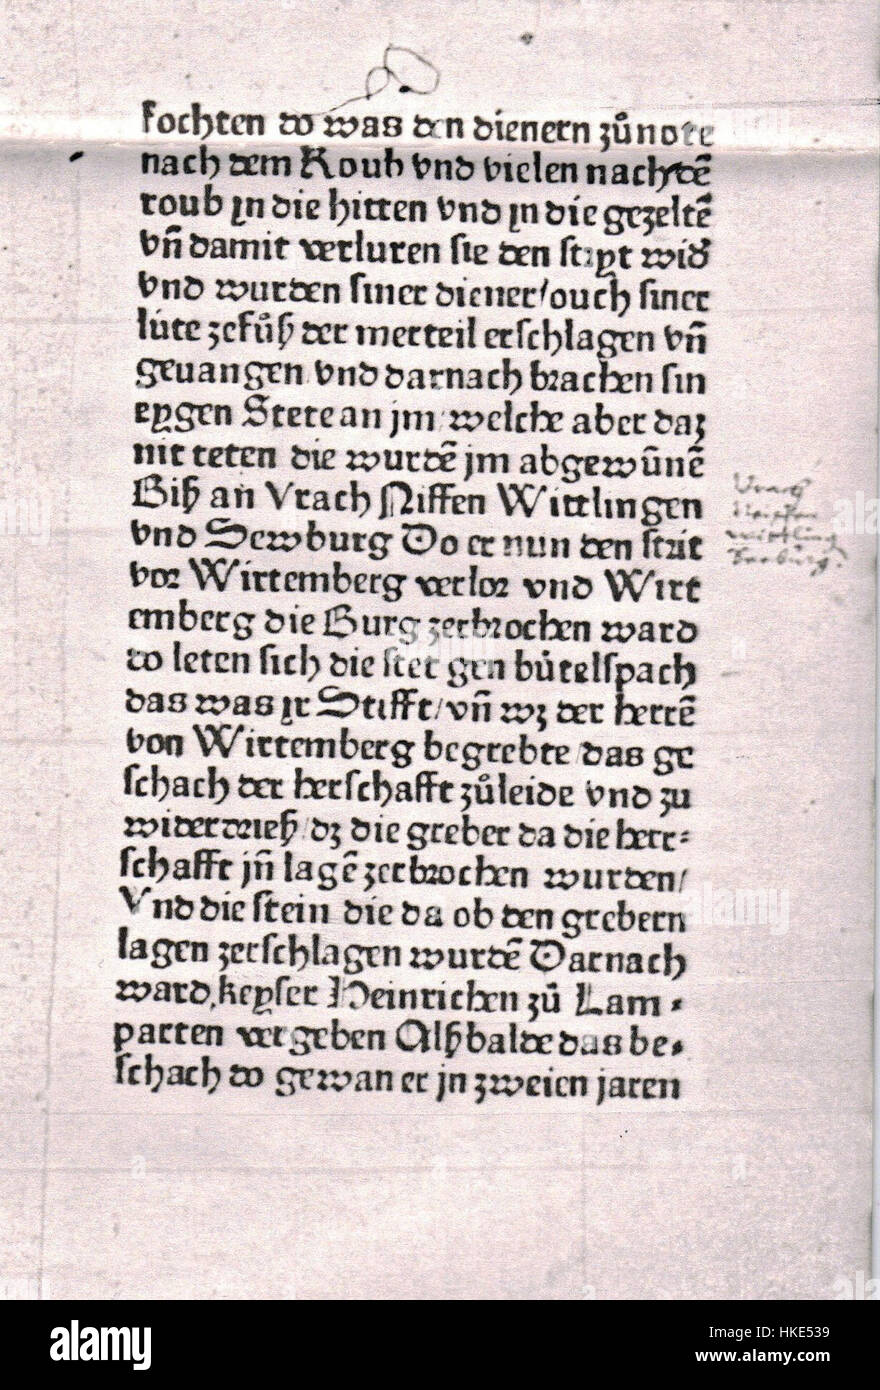 fochten do was den dienern zůnote
nach dem Roub vnd vielen nach dē
roub jn die hitten vnd jn die gezeltē
vñ damit verluren sie den stryt wid˜
vnd wurden siner diener/ouch siner
lúte zefůß der merteil erschlagen vñ
geuangen vnd darnach brachen sin
eygen Stete an jm welche aber daz
nit teten die wurdē jm abgewūnē
Biß an Vrach Niffen Wittlingen
vnd Sewburg Do er nun den strit
vor Wirtemberg verlor vnd Wirt
emberg die Burg zerbrochen ward
do leten sich die stet gen bútelspach
das was jr Stifft/vñ wz der herrē
von Wirtemberg begrebte/das ge
schach der herschafft zůleide vnd zu
widerdrieß/dz die greber da die herr⸗
schafft jñ lagē zerbrochen wurden/
Vnd die stein die da ob den grebern
lagen zerschlagen wurdē Darnach
ward keyser Heinrichen zů Lam⸗
parten vergeben Alßbalde das be⸗
schach do gewan er jn zweien jaren
Vrach
wittling
Seeburg.
alamy
Image ID: HKE539
www.alamy.com